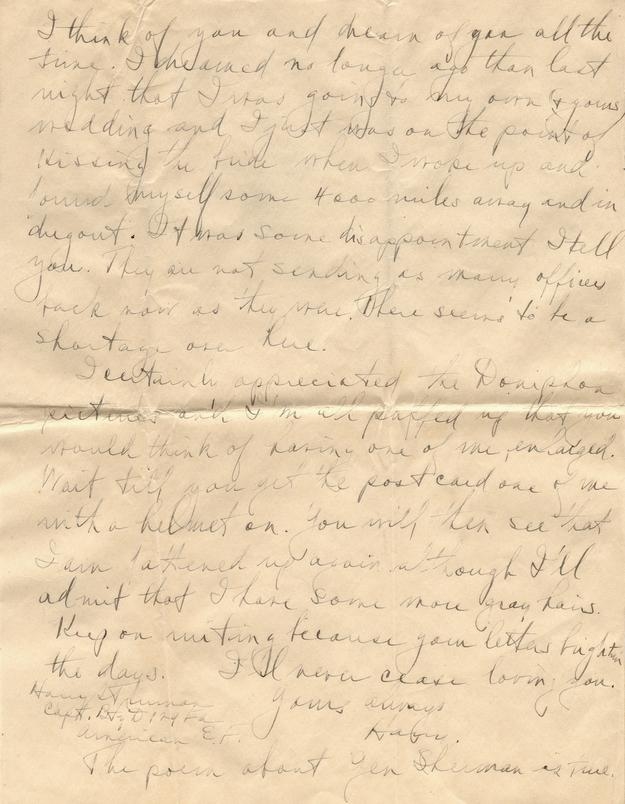 I think of you and dream of you all the
time. I dreamed no longer ago than last
night that I was going to my own & yours
wedding and I just was on the point of
kissing the bride when I woke up and
found myself some 4000 miles away and in
dugout. It was some disappointment I tell
you. They are not sending as many officers
back now as they were. There seems to be a
shortage over here.
I certainly appreciated the Doniphan
pictures and I'm all puffed up that you
would think of having one of me enlarged.
Wait till you get the post card one of me
with a helmet on. You will then see that
I am fattened up again although I'll
admit that I have some more gray hairs.
Keep on writing because your letters brighten
the days. I'll never cease loving you.
Yours always
Harry.
Harry S Truman
Capt. Bty D 129 FA
American E.F.
The poem about Gen Sherman is true.